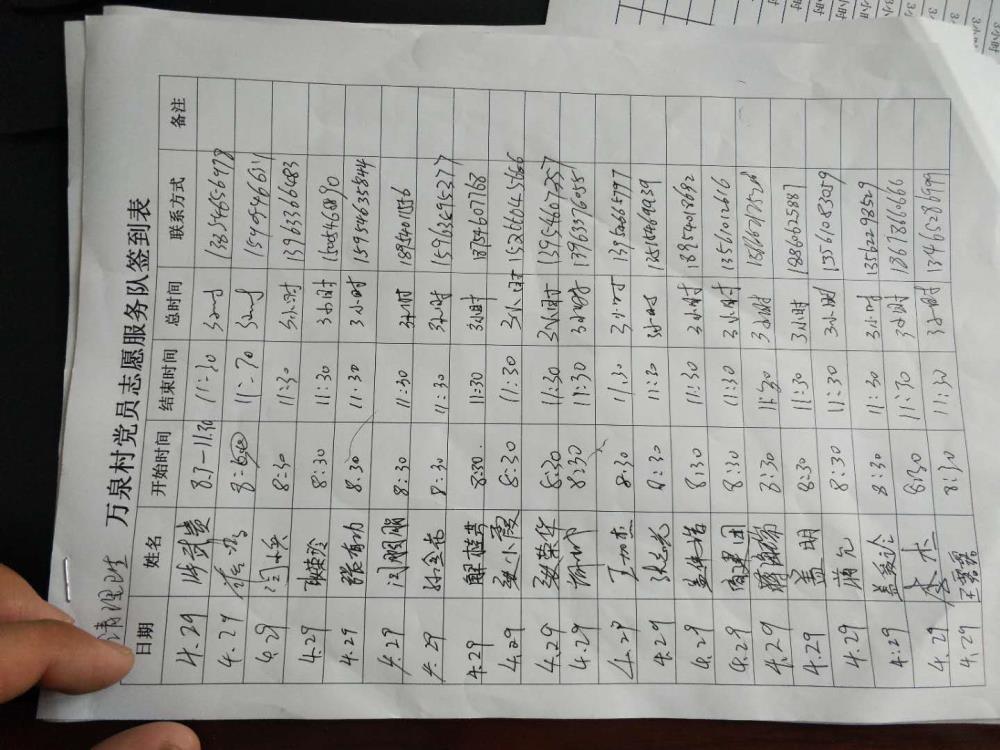 清理卫生
万泉村党员志愿服务队签到表
日期 姓名 开始时间 结束时间 总时间 联系方式 备注
4.29 8.30-11.30 11:30 3小时 13854656978
4.29 8: 11:30 3小时
4.29 闫小兵 8:30 11:30 3小时 13963366483
4.29 张荣玲 8:30 11:30 3小时
4.29 张有功 8:30 11:30 3小时 15954635844
4.29 闫鹏鹏 8:30 11:30 3小时 18954011556
4.29 孙全书 8:30 11:30 3小时 15963495277
4.29 解桂芳 8:30 11:30 3小时 13754607768
4.29 梁小霞 8:30 11:30 3小时 15266045666
4.29 梁荣华 8:30 11:30 3小时 13954607257
4.29 8:30 11:30 3小时 13963376055
4.29 8:30 11:30 3小时 13956665797
4.29 张志光 8:30 11:30 3小时
4.29 8:30 11:30 3小时 18954013692
4.29 8:30 11:30 3小时 13561012616
4.29 8:30 11:30 3小时
4.29 盖明 8:30 11:30 3小时 18866625887
4.29 蒲元 8:30 11:30 3小时 13561083059
4.29 盖爱玲 8:30 11:30 3小时 13562298529
4.29 李杰 8:30 11:30 3小时 18678666666
4.29 王霞霞 8:30 11:30 3小时 13465206999